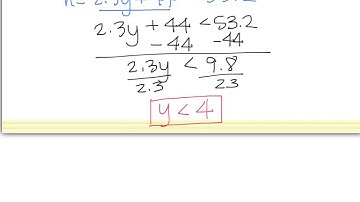 2.3y + 44 < 53.2
- 44 -44
2.3y < 9.8
2.3 23
y < 4